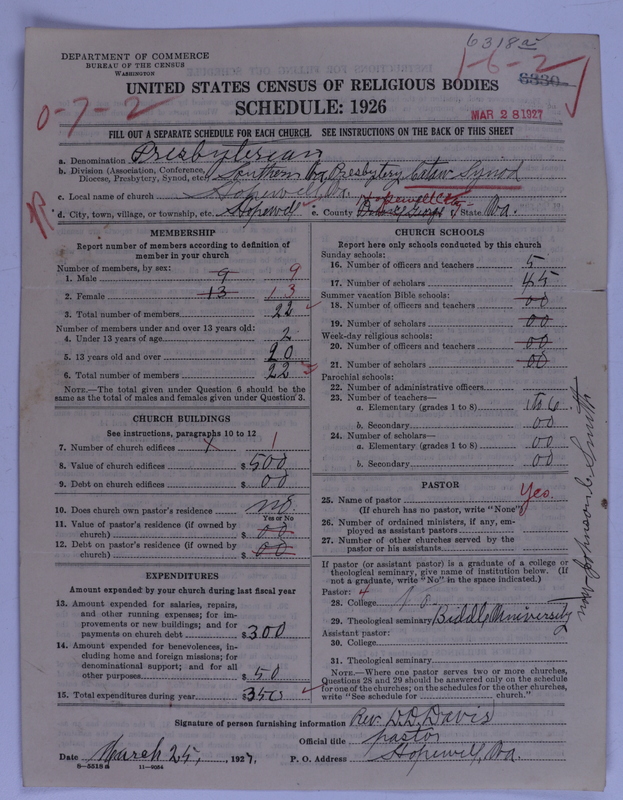 6318a
1-6-2
DEPARTMENT OF COMMERCE
BUREAU OF THE CENSUS
WASHINGTON
6330
UNITED STATES CENSUS OF RELIGIOUS BODIES
SCHEDULE: 1926
0-7-2
MAR 28 1927
FILL OUT A SEPARATE SCHEDULE FOR EACH CHURCH. SEE INSTRUCTIONS ON THE BACK OF THIS SHEET
a. Denomination Presbyterian
b. Division (Association, Conference, Diocese, Presbytery, Synod, etc.) Southern Va. Presbytery Cataw. Synod
c. Local name of church Hopewell, Va.
d. City, town, village, or township, etc. Hopewell e. County Hopewell City Prince George f. State Va.
MEMBERSHIP
Report number of members according to definition of
member in your church
Number of members, by sex:
1. Male 9 9
2. Female 13 13
3. Total number of members 22
Number of members under and over 13 years old:
4. Under 13 years of age 2
5. 13 years old and over 20
6. Total number of members 22
NOTE.—The total given under Question 6 should be the
same as the total of males and females given under Question 3.
CHURCH BUILDINGS
See instructions, paragraphs 10 to 12
7. Number of church edifices 1
8. Value of church edifices $500
9. Debt on church edifices $00
10. Does church own pastor's residence no.
Yes or No
11. Value of pastor's residence (if owned by
church) $00
12. Debt on pastor's residence (if owned by
church) $00
EXPENDITURES
Amount expended by your church during last fiscal year
13. Amount expended for salaries, repairs,
and other running expenses; for im-
provements or new buildings; and for
payments on church debt $300
14. Amount expended for benevolences, in-
cluding home and foreign missions; for
denominational support; and for all
other purposes $50
15. Total expenditures during year $350
CHURCH SCHOOLS
Report here only schools conducted by this church
Sunday schools:
16. Number of officers and teachers 5
17. Number of scholars 45
Summer vacation Bible schools:
18. Number of officers and teachers 00
19. Number of scholars 00
Week-day religious schools:
20. Number of officers and teachers 00
21. Number of scholars 00
Parochial schools:
22. Number of administrative officers
23. Number of teachers—
a. Elementary (grades 1 to 8) 1 to 6
b. Secondary 00
24. Number of scholars—
a. Elementary (grades 1 to 8) 00
b. Secondary 00
PASTOR
25. Name of pastor Yes.
(If church has no pastor, write "None")
26. Number of ordained ministers, if any, em-
ployed as assistant pastors
27. Number of other churches served by the
pastor or his assistants
If pastor (or assistant pastor) is a graduate of a college or
theological seminary, give name of institution below. (If
not a graduate, write "No" in the space indicated.)
Pastor: 4
28. College no
29. Theological seminary Biddle University
now Johnson C. Smith
Assistant pastor:
30. College
31. Theological seminary
NOTE.—Where one pastor serves two or more churches,
Questions 28 and 29 should be answered only on the schedule
for one of the churches; on the schedules for the other churches,
write "See schedule for church."
Signature of person furnishing information Rev. D.D. Davis
Official title pastor
Date March 25, 1927. P. O. Address Hopewell, Va.
8—5518a 11—9054